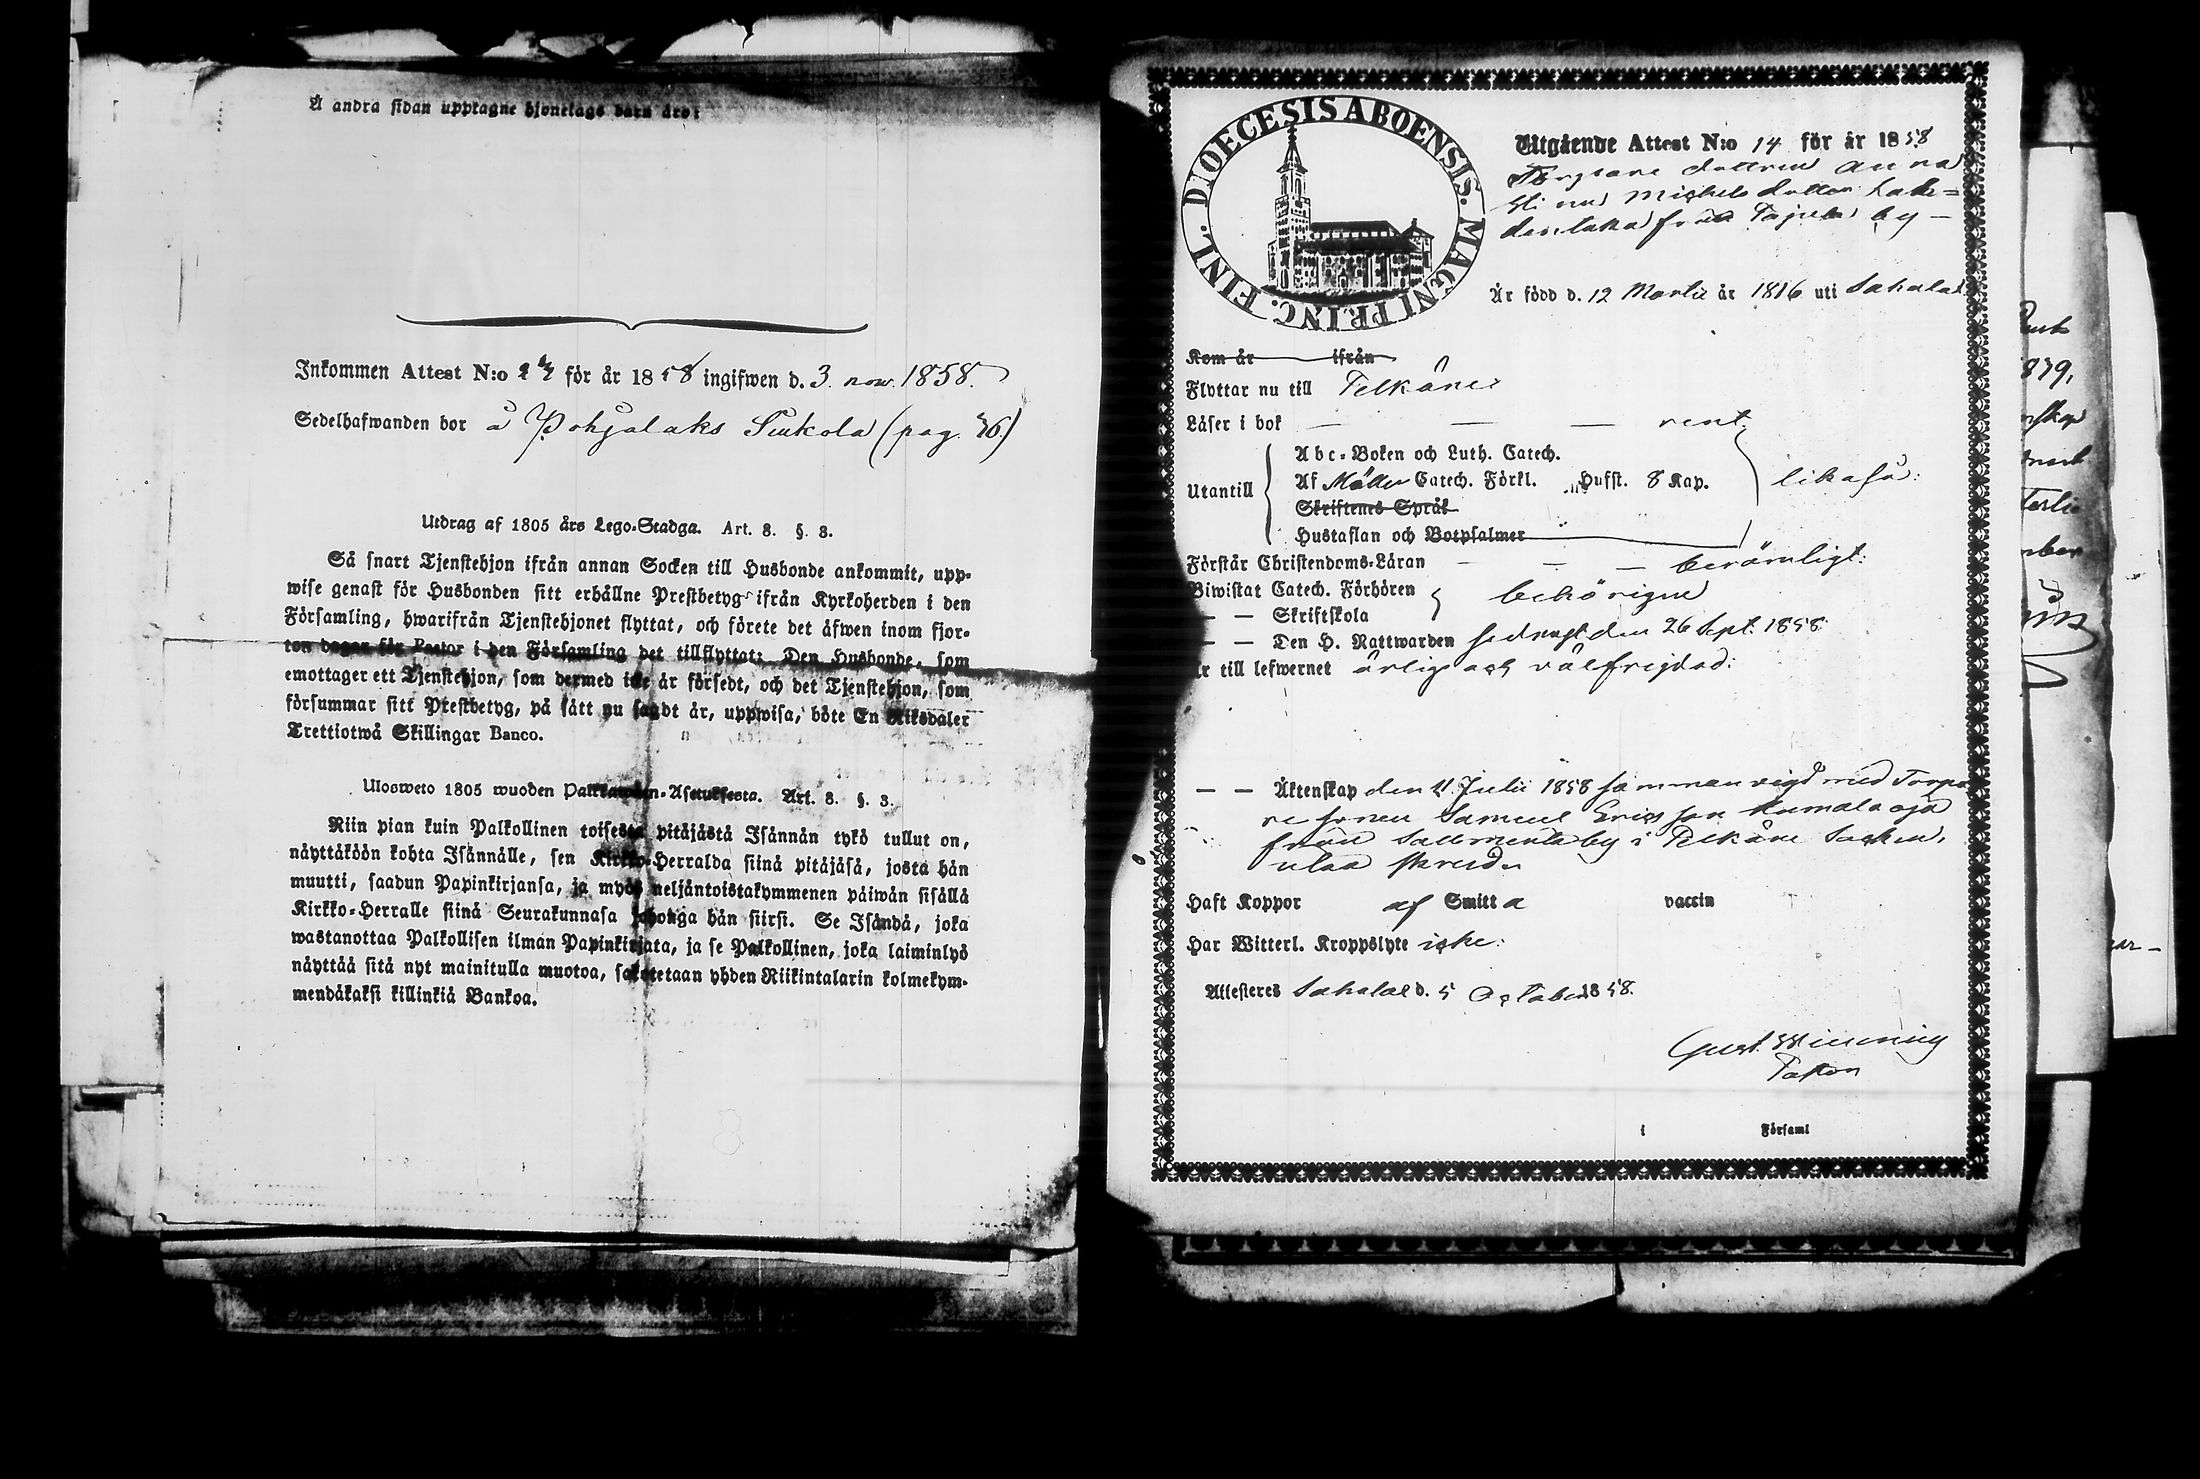 Å andra sidan upptagne hjonelags barn äro:
Inkommen Attest N:o för år 1858 ingifwen d. 3. nov. 1858.
Sedelhafwanden bor å Pohjalaks Sukola (pag. 36.)
Utdrag af 1805 års Lego-Stadga. Art. 8. §. 3.
Så snart Tjenstehjon ifrån annan Socken till Husbonde ankommit, upp-
wise genast för Husbonden sitt erhållne Prestbetyg ifrån Kyrkoherden i den
Församling, hwarifrån Tjenstehjonet flyttat, och förete det äfwen inom fjor-
ton dagar för Pastor i den Församling det tillflyttat: Den Husbonde, som
emottager ett Tjenstehjon, som dermed icke är försedt, och det Tjenstehjon, som
försummar sitt Prestbetyg, på sätt nu sagdt är, uppwisa, böte En Riksdaler
Trettiotwå Skillingar Banco.
Ulosweto 1805 wuoden Palkkawäen-Asetuksesta. Art. 8. §. 3.
Niin pian kuin Palkollinen toisesta pitäjästä Isännän tykö tullut on,
näyttäköön kohta Isännälle, sen Kirkko-Herralda siinä pitäjäsä, josta hän
muutti, saadun Papinkirjansa, ja myös neljäntoistakymmenen päiwän sisällä
Kirkko-Herralle siinä Seurakunnasa johonga hän siirsi. Se Isändä, joka
wastanottaa Palkollisen ilman Papinkirjata, ja se Palkollinen, joka laiminlyö
näyttää sitä nyt mainitulla muotoa, sakotetaan yhden Riikintalarin kolmekym-
mendäkaksi killinkiä Bankoa.
DIOECESIS ABOENSIS. MAGNI PRINC. FINL.
Utgående Attest N:o 14 för år 1858
Torpare dottren Anna
Stina Michels dotter
från by
Är född d. 12 Martii år 1816 uti Sahalax
Kom år ifrån
Flyttar nu till Pelkäne
Läser i bok — — — rent.
Utantill
Abc-Boken och Luth. Catech.
Af Möller Catech. Förkl. Hufst. 8 Kap.
likaså:
Skriftenes Språk
Hustaflan och Botpsalmer
Förstår Christendoms-Läran — — — berömligt.
Biwistat Catech. Förhören
behörigen
— — Skriftskola
— — Den H. Nattwarden sednast den 26 Sept. 1858
Är till lefwernet ärlig och välfrejdad:
— — Äktenskap den 11 Julii 1858 sammanvigd med Torpa
re sonen Samuel Ericsson Humalaoja
från Salmentaby i Pelkäne Socken,
utan
Haft Koppor af Smitta vaccin
Har Witterl. Kroppslyte icke.
Attesteres Sahalax d. 5 October 1858.
Gust. Winning
Pastor
i Församl